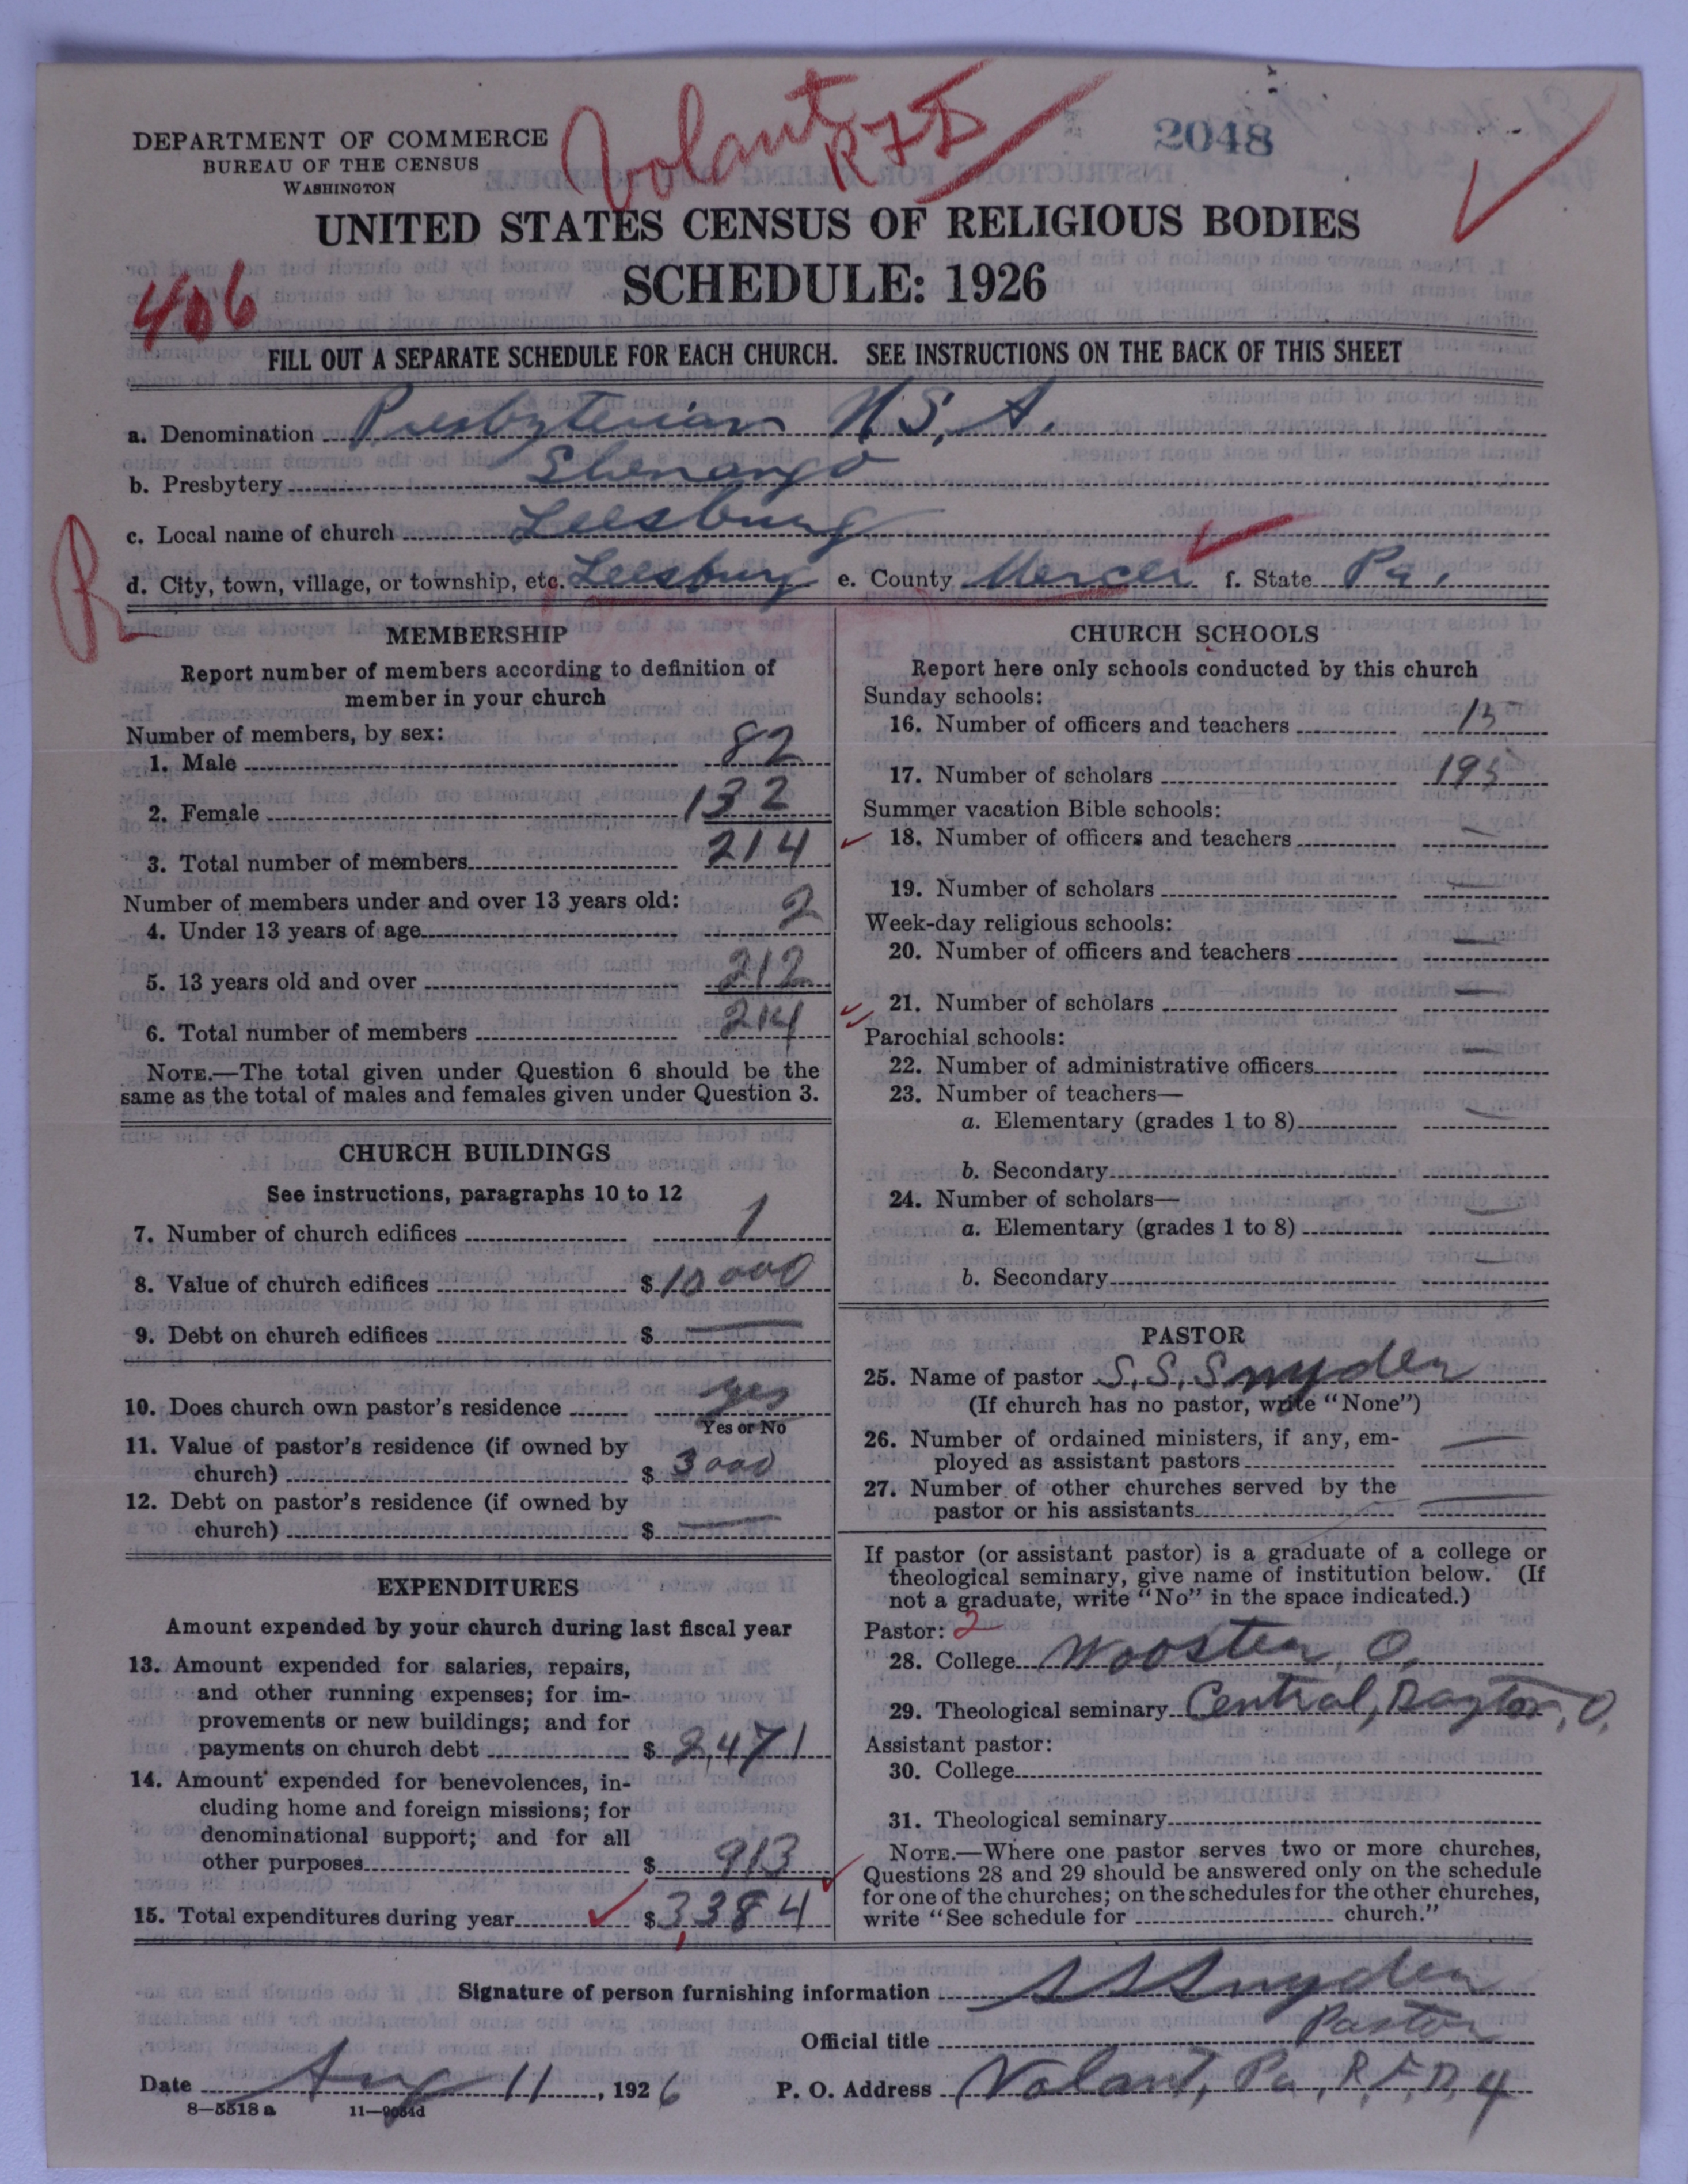 Volant
R F D
2048
DEPARTMENT OF COMMERCE
BUREAU OF THE CENSUS
WASHINGTON
UNITED STATES CENSUS OF RELIGIOUS BODIES
SCHEDULE: 1926
406
FILL OUT A SEPARATE SCHEDULE FOR EACH CHURCH. SEE INSTRUCTIONS ON THE BACK OF THIS SHEET
a. Denomination Presbyterian U.S.A.
b. Presbytery Shenango
c. Local name of church Leesburg
R
d. City, town, village, or township, etc. Leesburg e. County Mercer f. State Pa.
MEMBERSHIP
Report number of members according to definition of
member in your church
Number of members, by sex:
1. Male 82
2. Female 132
3. Total number of members 214
Number of members under and over 13 years old:
4. Under 13 years of age 2
5. 13 years old and over 212
6. Total number of members 214
NOTE.—The total given under Question 6 should be the
same as the total of males and females given under Question 3.
CHURCH BUILDINGS
See instructions, paragraphs 10 to 12
7. Number of church edifices 1
8. Value of church edifices $ 10 000
9. Debt on church edifices $ —
10. Does church own pastor's residence yes
Yes or No
11. Value of pastor's residence (if owned by
church) $ 3000
12. Debt on pastor's residence (if owned by
church) $ —
EXPENDITURES
Amount expended by your church during last fiscal year
13. Amount expended for salaries, repairs,
and other running expenses; for im-
provements or new buildings; and for
payments on church debt $ 2,471
14. Amount expended for benevolences, in-
cluding home and foreign missions; for
denominational support; and for all
other purposes $ 913
15. Total expenditures during year $ 3,384
CHURCH SCHOOLS
Report here only schools conducted by this church
Sunday schools:
16. Number of officers and teachers 15
17. Number of scholars 195
Summer vacation Bible schools:
18. Number of officers and teachers —
19. Number of scholars —
Week-day religious schools:
20. Number of officers and teachers —
21. Number of scholars —
Parochial schools:
22. Number of administrative officers —
23. Number of teachers—
a. Elementary (grades 1 to 8) —
b. Secondary
24. Number of scholars—
a. Elementary (grades 1 to 8) —
b. Secondary —
PASTOR
25. Name of pastor S. S. Snyder
(If church has no pastor, write "None")
26. Number of ordained ministers, if any, em-
ployed as assistant pastors —
27. Number of other churches served by the
pastor or his assistants —
If pastor (or assistant pastor) is a graduate of a college or
theological seminary, give name of institution below. (If
not a graduate, write "No" in the space indicated.)
Pastor: 2
28. College Wooster, O.
29. Theological seminary Central, Dayton, O.
Assistant pastor:
30. College
31. Theological seminary
NOTE.—Where one pastor serves two or more churches,
Questions 28 and 29 should be answered only on the schedule
for one of the churches; on the schedules for the other churches,
write "See schedule for church."
Signature of person furnishing information S S Snyder
Official title Pastor
Date Aug 11, 1926 P. O. Address Volant, Pa, R.F.D. 4
8—5518 a